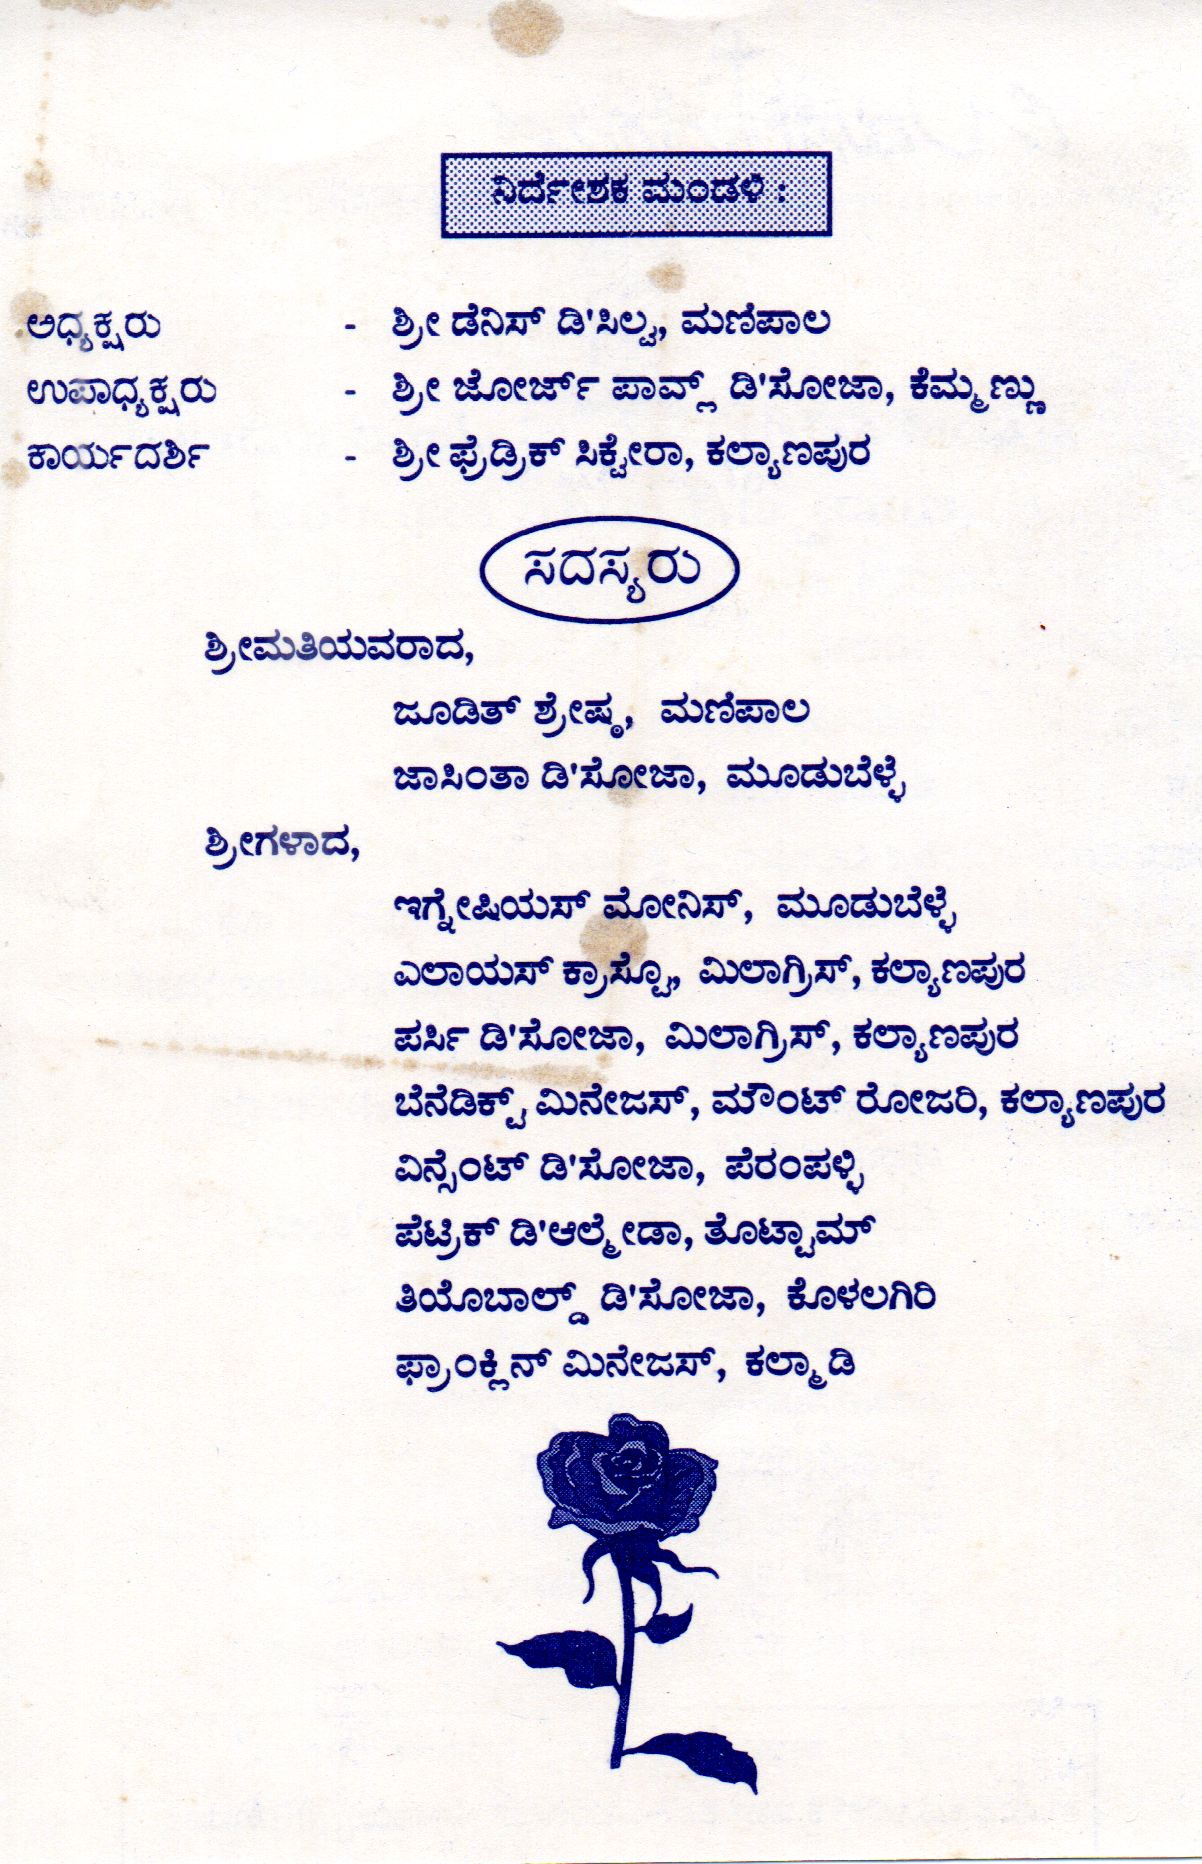 ನಿರ್ದೇಶಕ ಮಂಡಳಿ :
ಅಧ್ಯಕ್ಷರು - ಶ್ರೀ ಡೆನಿಸ್ ಡಿ'ಸಿಲ್ವ, ಮಣಿಪಾಲ
ಉಪಾಧ್ಯಕ್ಷರು - ಶ್ರೀ ಜೋರ್ಜ್ ಪಾವ್ಲ್ ಡಿ'ಸೋಜಾ, ಕೆಮ್ಮಣ್ಣು
ಕಾರ್ಯದರ್ಶಿ - ಶ್ರೀ ಫ್ರೆಡ್ರಿಕ್ ಸಿಕ್ವೇರಾ, ಕಲ್ಯಾಣಪುರ
ಸದಸ್ಯರು
ಶ್ರೀಮತಿಯವರಾದ,
ಜೂಡಿತ್ ಶ್ರೇಷ್ಠ, ಮಣಿಪಾಲ
ಜಾಸಿಂತಾ ಡಿ'ಸೋಜಾ, ಮೂಡುಬೆಳ್ಳೆ
ಶ್ರೀಗಳಾದ,
ಇಗ್ನೇಷಿಯಸ್ ಮೋನಿಸ್, ಮೂಡುಬೆಳ್ಳೆ
ಎಲಾಯಸ್ ಕ್ರಾಸ್ಟೊ, ಮಿಲಾಗ್ರಿಸ್, ಕಲ್ಯಾಣಪುರ
ಪರ್ಸಿ ಡಿ'ಸೋಜಾ, ಮಿಲಾಗ್ರಿಸ್, ಕಲ್ಯಾಣಪುರ
ಬೆನೆಡಿಕ್ಟ್ ಮಿನೇಜಸ್, ಮೌಂಟ್ ರೋಜರಿ, ಕಲ್ಯಾಣಪುರ
ವಿನ್ಸೆಂಟ್ ಡಿ'ಸೋಜಾ, ಪೆರಂಪಳ್ಳಿ
ಪೆಟ್ರಿಕ್ ಡಿ'ಆಲ್ಮೇಡಾ, ತೊಟ್ಟಾಮ್
ತಿಯೊಬಾಲ್ಡ್ ಡಿ'ಸೋಜಾ, ಕೊಳಲಗಿರಿ
ಫ್ರಾಂಕ್ಲಿನ್ ಮಿನೇಜಸ್, ಕಲ್ಮಾಡಿ